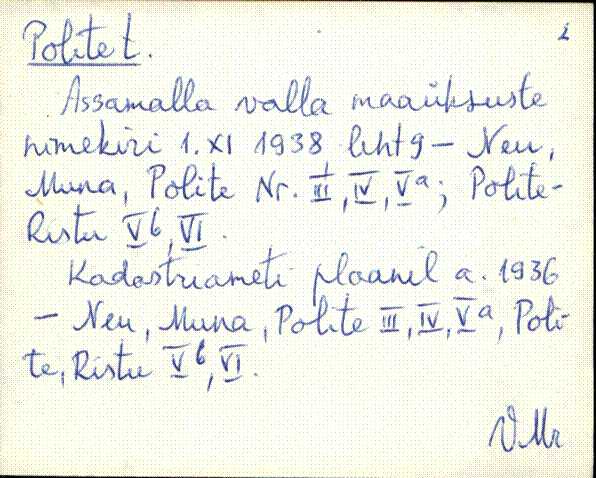 Polite t.
2
Assamalla valla maaüksuste
nimekiri 1. XI 1938 leht 9 – Neu,
Muna, Polite Nr. III, IV, Va; Polite-
Ristu Vb, VI.
Kadastriameti plaanil a. 1936
– Neu, Muna, Polite III, IV, Va, Poli-
te, Ristu Vb, VI.
VMr